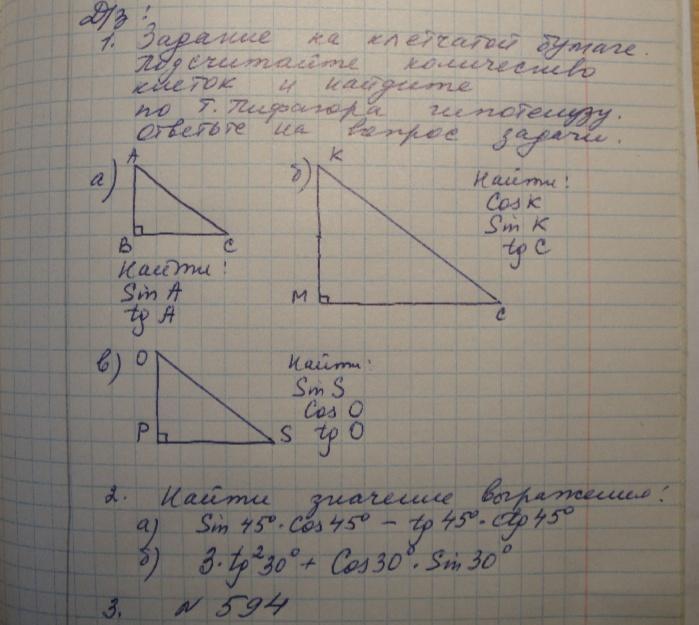 Д/з!
1. Задание на клетчатой бумаге.
Подсчитайте количество
клеток и найдите
по т. Пифагора гипотенузу.
Ответьте на вопрос задачи.
а) A B C
Найти:
Sin A
tg A
б) K M C
Найти:
Cos K
Sin K
tg C
в) O P S
Найти:
Sin S
Cos O
tg O
2. Найти значение выражения:
а) Sin 45° · Cos 45° - tg 45° · ctg 45°
б) 3 · tg² 30° + Cos 30° · Sin 30°
3. N 594